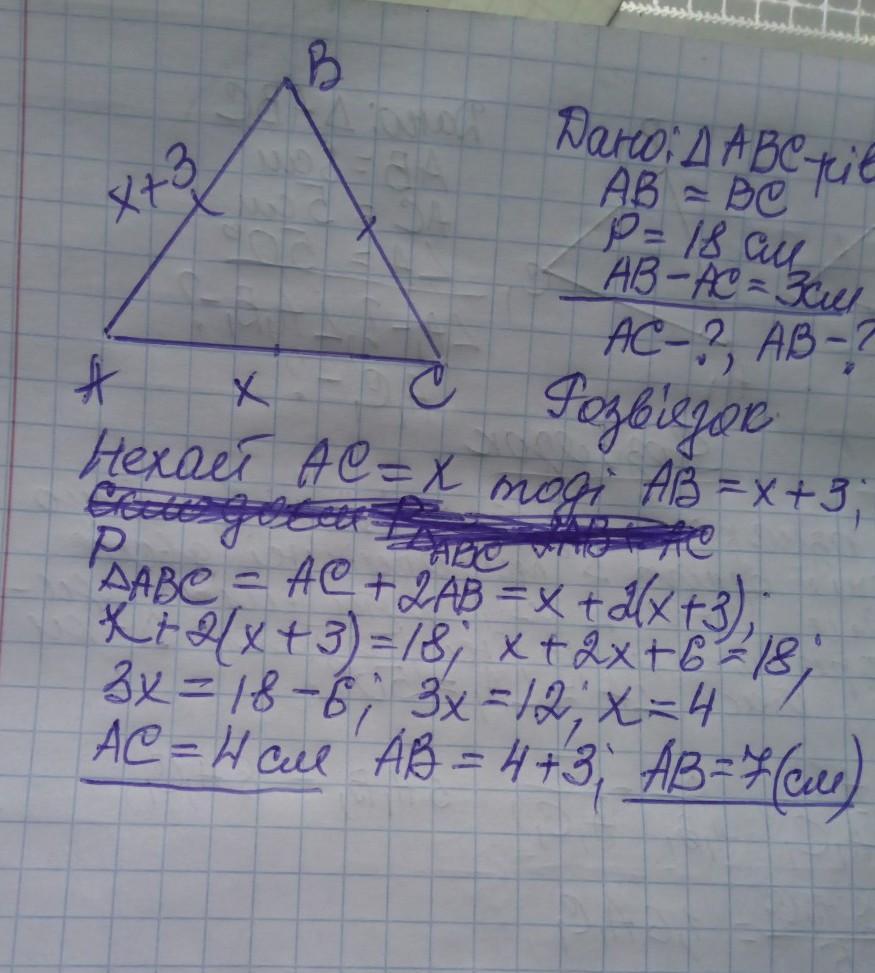 B
x+3
A x C
Дано: Δ ABC-рів
AB = BC
P = 18 см
AB - AC = 3см
AC-?, AB-?
Розв'язок
Нехай AC = x тоді AB = x+3;
P ΔABC = AC + 2AB = x + 2(x+3);
x + 2(x+3) = 18; x + 2x + 6 = 18;
3x = 18 - 6; 3x = 12; x = 4
AC = 4 см AB = 4+3; AB = 7(см)